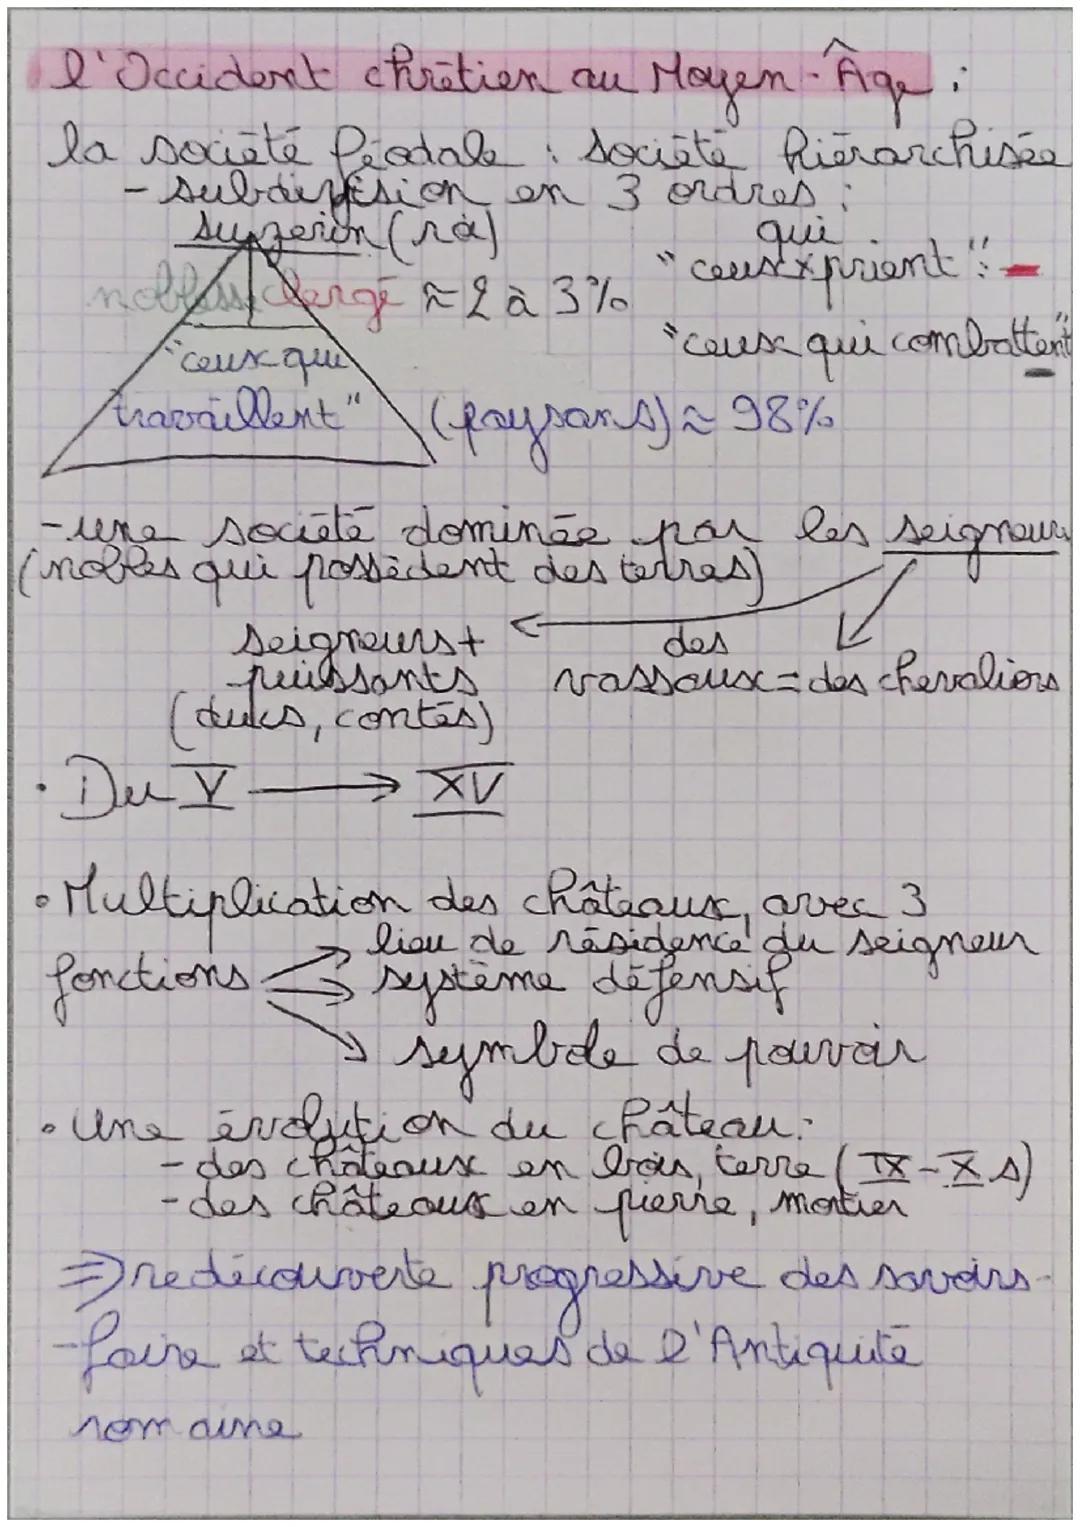 l'Occident chrétien au Moyen-Âge :
la société féodale : société hiérarchisée
- subdivision en 3 ordres :
suzerin (roi)
qui
"ceux x prient" : -
noblesse clergé ≈ 2 à 3%
"ceux qui combattent"
"ceux qui
travaillent" (paysans) ≈ 98%
- une société dominée par les seigneurs
(nobles qui possèdent des terres)
seigneurs +
puissants
(ducs, contes)
des
vassaux = des chevaliers
· Du V → XV
• Multiplication des châteaux, avec 3
lieu de résidence du seigneur
fonctions → système défensif
→ symbole de pouvoir
• Une évolution du château :
- des châteaux en bois, terre (IX - X s)
- des châteaux en pierre, mortier
⇒ redécouverte progressive des savoirs-
-faire et techniques de l'Antiquité
romaine